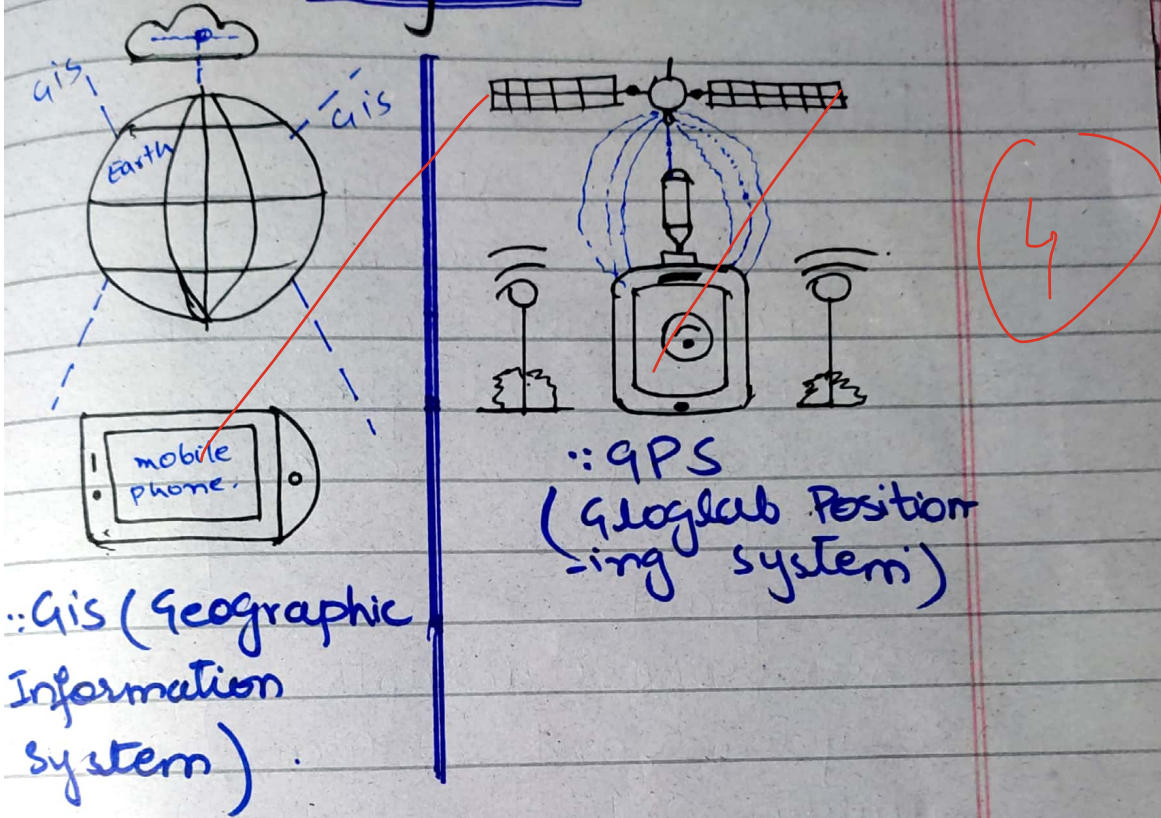 Gis
Gis
Earth
mobile
phone.
∴ Gis (Geographic
Information
System) .
∴ GPS
(Gloglab Position
-ing system)
4